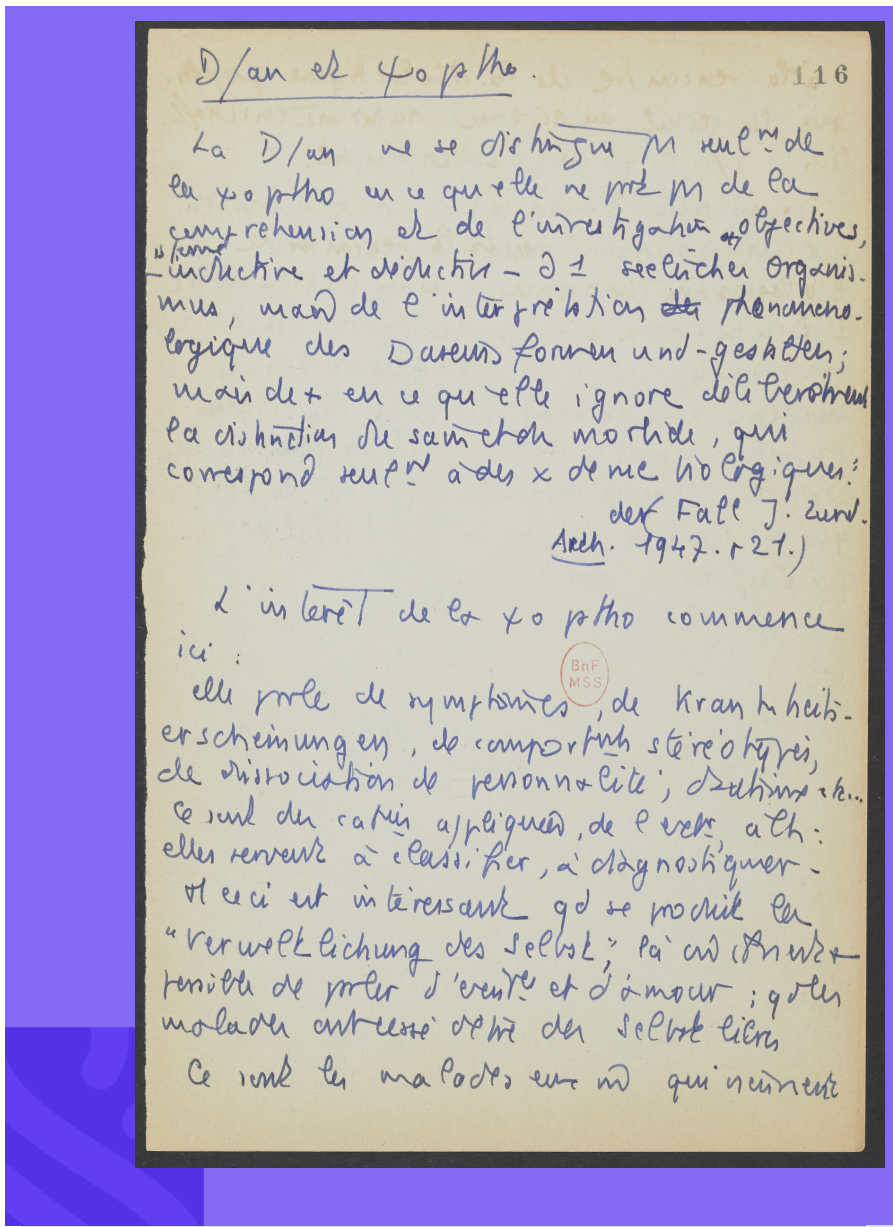 D/an et ψoptho.
116
La D/an ne se distingue pas seulnt de
la ψoptho en ce qu'elle ne part pas de la
compréhension et de l'investigation objectives,
- inductive et déductive - d 1 seelischen Organis-
mus, mais de l'interprétation phénoméno-
logique des Daseinsformen und -gestalten;
mais de + en ce qu'elle ignore délibérément
la distinction du sain et du morbide, qui
correspond seulnt à des x de vie biologiques."
der Fall J. Zund.
Arch. 1947. p 21.)
L'intérêt de la ψoptho commence
ici :
elle parle de symptômes, de Krankheits-
erscheinungen, de comportnts stéréotypés,
de dissociation de personnalité, etc...
Ce sont des appliquées, de l'ext, :
elles servent à classifier, à diagnostiquer -
Et ceci est intéressant qd se produit la
"Verweltlichung des Selbst"; là où
possible de parler d' et d'amour ; qd les
malades ont cessé d'être des Selbst libres
Ce sont les malades eux m qui
BnF
MSS